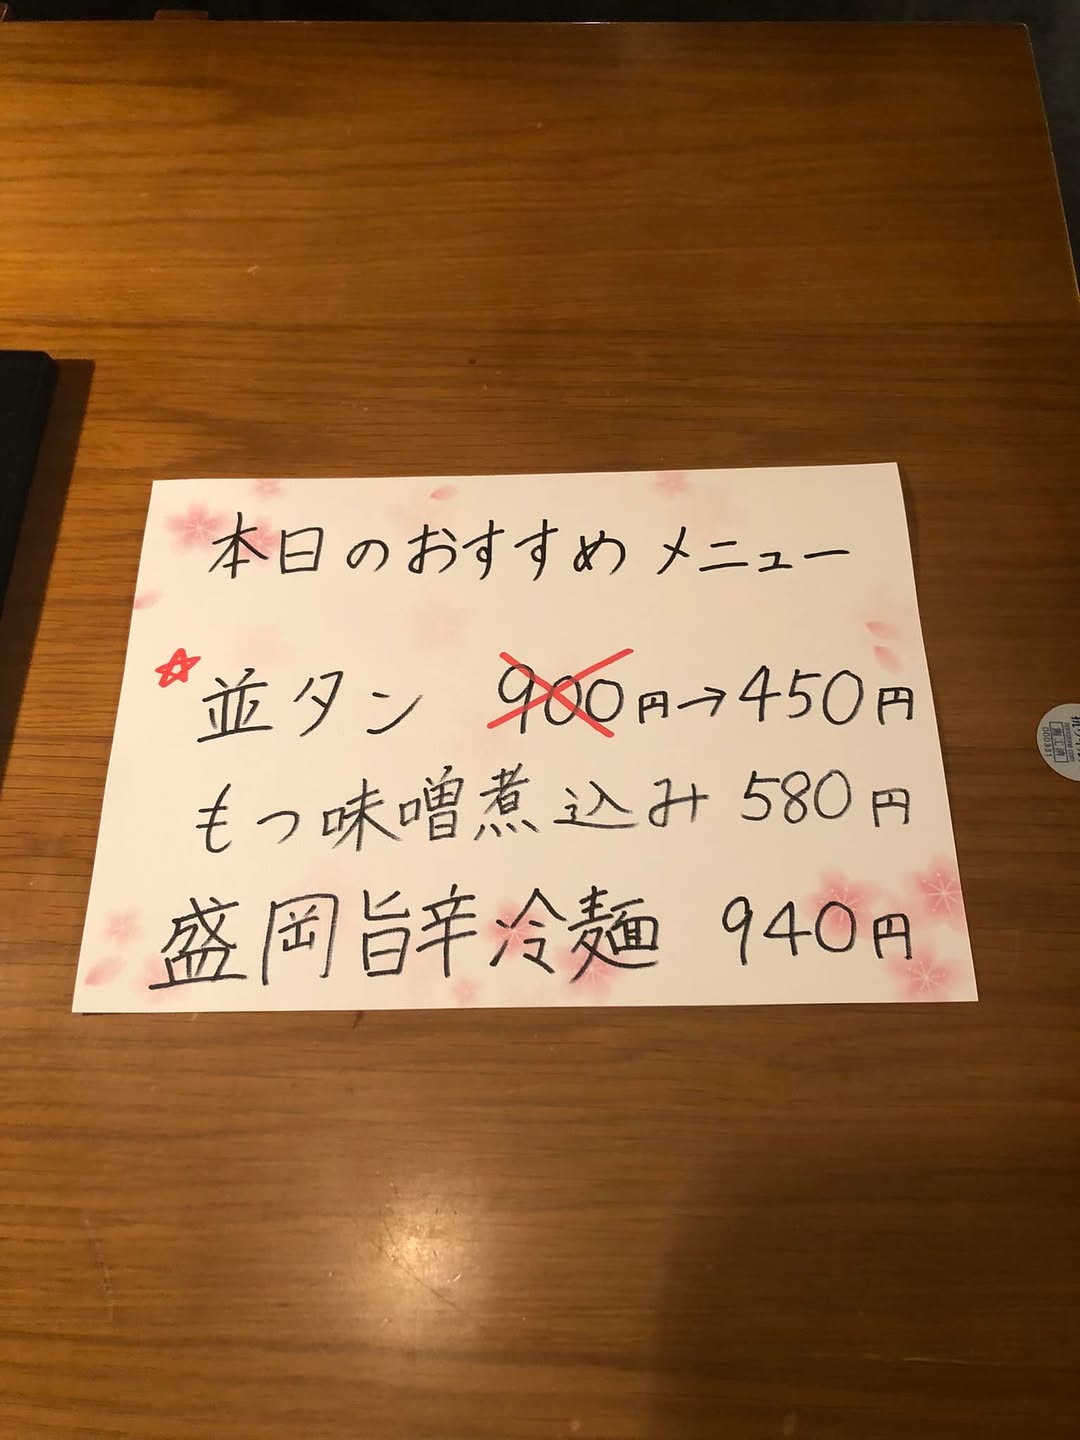 本日のおすすめメニュー
☆並タン 900円→450円
もつ味噌煮込み 580円
盛岡旨辛冷麺 940円
施工済
000331